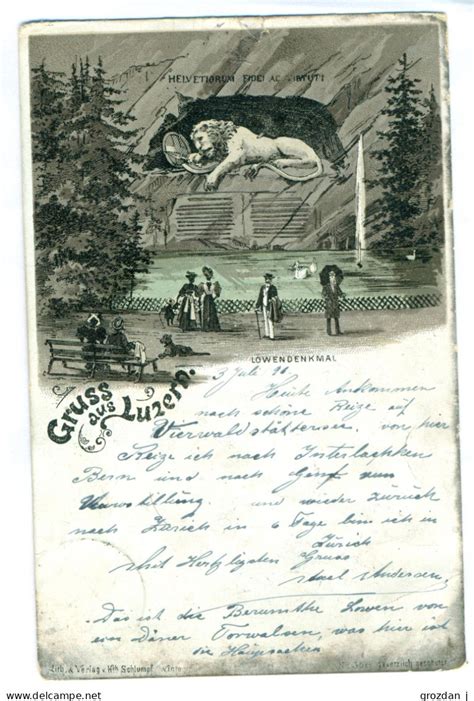 HELVETIORUM FIDEI AC VIRTUTI
LÖWENDENKMAL
Gruss
aus
Luzern.
3 Juli 96
Heute Ankommen
nach schöne Reize auf
Vierwaldstättersee, von hier
Reize ich nach Interlacken
Bern und nach Genf zum
und wieder zürick
nach Zürich in 6 Tage bin ich in
Zürich
Mit Herfligsten Gruss
Axel Andersen
Das ist die Berumthe Lowen von
von Däner Torwalsen, was hier ist
die Haupsachen
Lith. & Verlag v. Wilh. Schlumpf
Gesetzlich geschützt
grozdan j